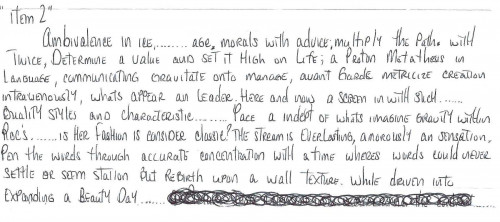 "item 2"
Ambivalence in ice,....... age, morals with advice, multiply the Path. with
Twice, Determine a value and set it High on Life; a Proton Metathesis in
Language, communicating Gravitate onto manage, avant Garde metricize creation
intravenously, whats appear an Leader. Here and now a screen in with such.......
Quality styles and characteristic......... Pace a indent of whats imagine Gravity within
Roc's....... is Her Fashion is consider classic? The stream is Everlasting, amorously an sensation.
Pen the words through accurate concentration with a time wheres words could never
settle or seem station But ReBirth upon a wall texture. While driven into
Expanding a Beauty Day......